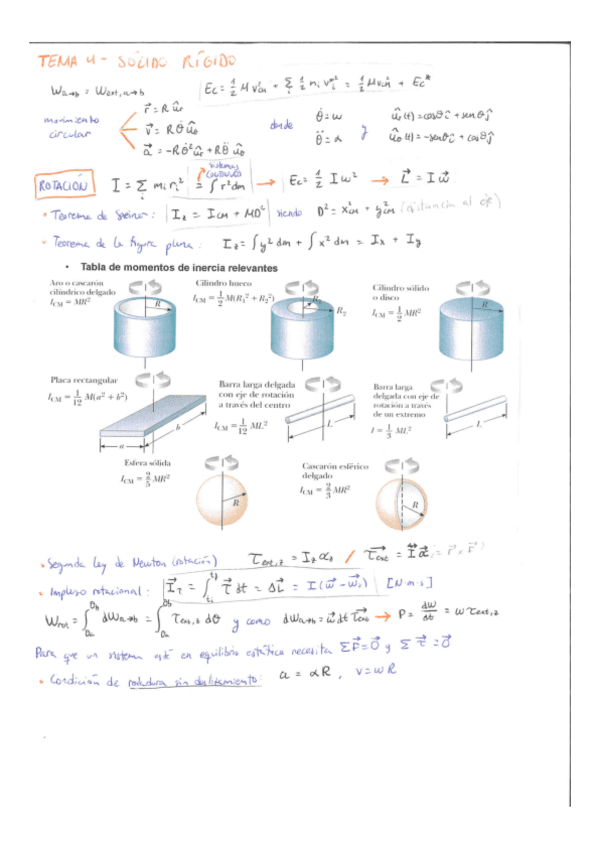 TEMA 4 - SÓLIDO RÍGIDO
W a→b = W ext, a→b
Ec = 1/2 M v²cm + Σ 1/2 mᵢ vᵢ*² = 1/2 M v²cm + Ec*
movimiento circular
r⃗ = R ûr
v⃗ = R θ̇ ûθ
a⃗ = -R θ̇² ûr + R θ̈ ûθ
donde
θ̇ = ω
θ̈ = α
y
ûr(t) = cosθ î + senθ ĵ
ûθ(t) = -senθ î + cosθ ĵ
ROTACIÓN
I = Σ mᵢ rᵢ² = ∫ r² dm → Ec = 1/2 I ω² → L⃗ = I ω⃗
• Teorema de Steiner: I_z = I_CM + MD² siendo D² = x²cm + y²cm (distancia al eje)
• Teorema de la figura plana: I_z = ∫ y² dm + ∫ x² dm = Ix + Iy
• Tabla de momentos de inercia relevantes
Aro o cascarón
cilíndrico delgado
I_CM = MR²
R
Cilindro hueco
I_CM = 1/2 M(R₁² + R₂²)
R₁
R₂
Cilindro sólido
o disco
I_CM = 1/2 MR²
R
Placa rectangular
I_CM = 1/12 M(a² + b²)
a
b
Barra larga delgada
con eje de rotación
a través del centro
I_CM = 1/12 ML²
L
Barra larga
delgada con eje de
rotación a través
de un extremo
I = 1/3 ML²
L
Esfera sólida
I_CM = 2/5 MR²
R
Cascarón esférico
delgado
I_CM = 2/3 MR²
R
• Segunda Ley de Newton (rotación) τ ext,z = I_z α_z / τ⃗ext = I α⃗
• Impulso rotacional: I⃗τ = ∫ τ⃗ dt = ΔL⃗ = I(ω⃗ - ω⃗ᵢ) [N·m·s]
W rot = ∫ dW a→b = ∫ τ ext,z dθ y como dW a→b = ω⃗ dt τ⃗ext → P = dW/dt = ω τ ext,z
Para que un sistema esté en equilibrio estático necesita ΣF⃗ = 0⃗ y Στ⃗ = 0⃗
• Condición de rodadura sin deslizamiento: a = αR, v = ωR